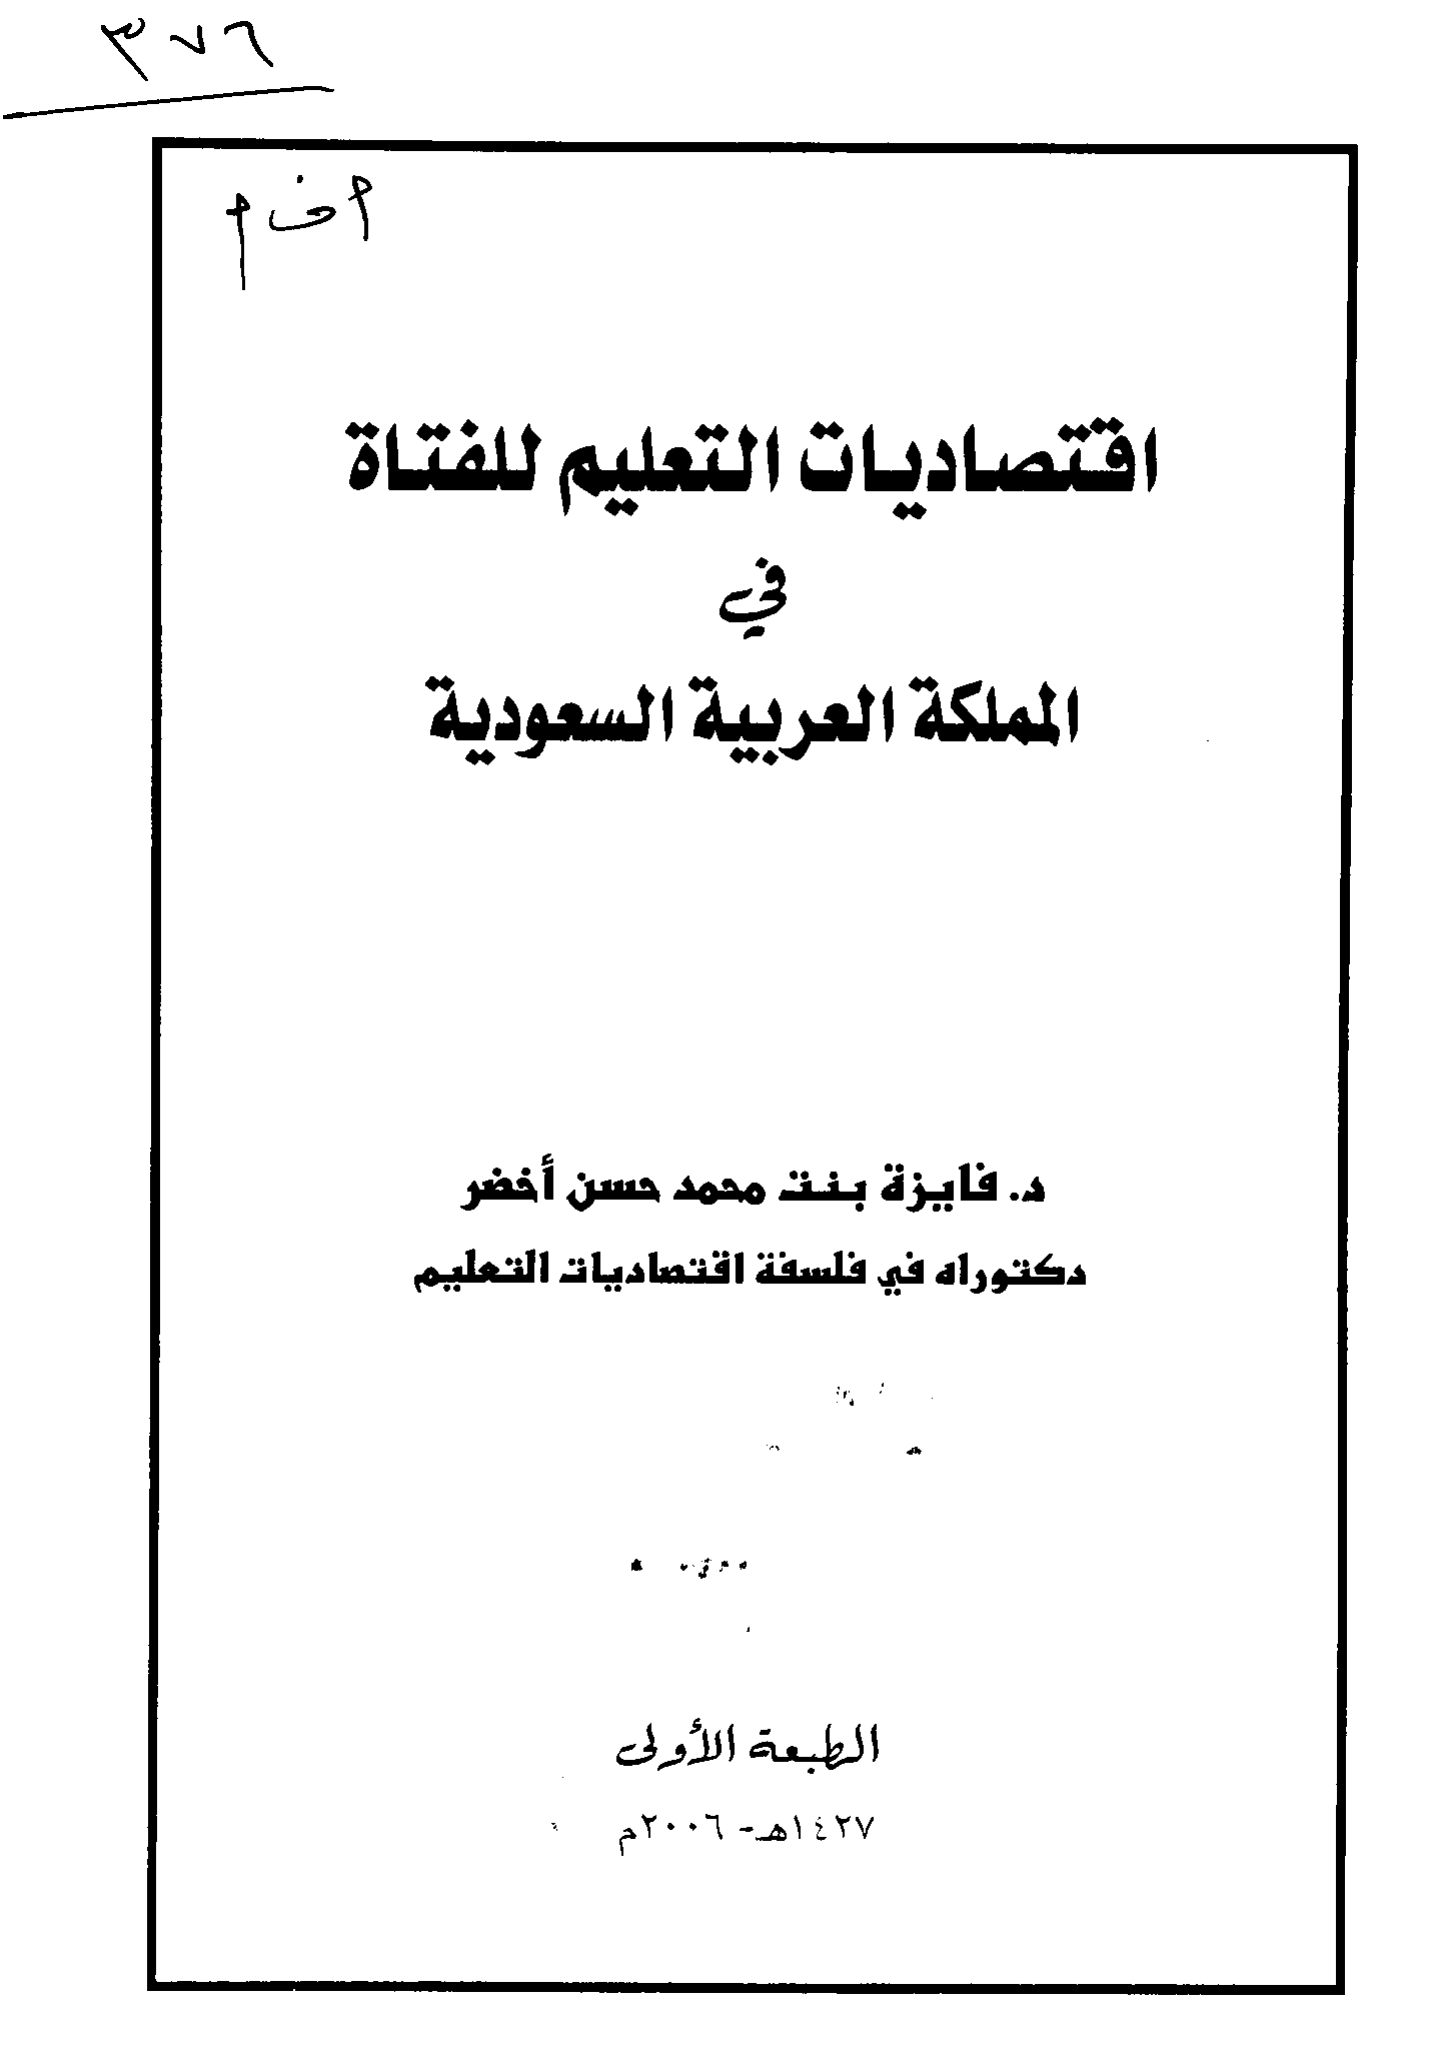 ٣٧٦
اقتصاديات التعليم للفتاة
في
المملكة العربية السعودية
د. فايزة بنت محمد حسن أخضر
دكتوراه في فلسفة اقتصاديات التعليم
الطبعة الأولى
١٤٢٧هـ - ٢٠٠٦م